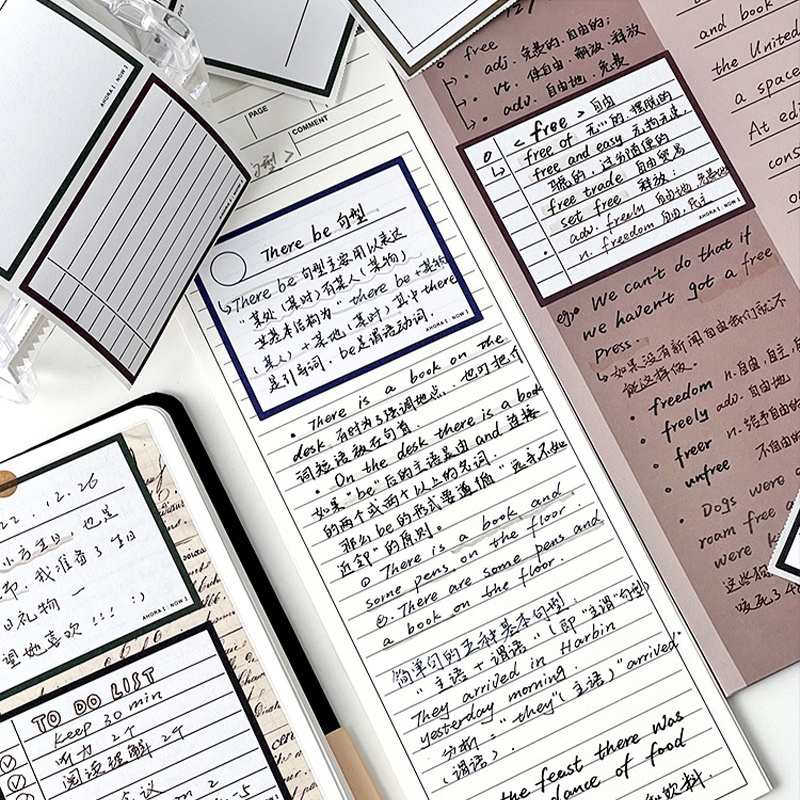 AHORA [ : NOW ]
PAGE
COMMENT
句型 >
There be 句型
There be 句型主要用以表达
"某处(某时)有某人(某物)
其基本结构为 "there be +某物
(某人) + 某地(某时) 其中there
是引导词, be是谓语动词.
AHORA [ : NOW ]
• There is a book on the
desk. 有时为了强调地点, 也可把介
词短语放在句首.
• On the desk there is a book
如果"be"后的主语是由 and 连接
的两个或两个以上的名词.
那么be的形式要遵循 "远亲不如
近邻"的原则.
① There is a book and
some pens on the floor.
②. There are some pens and
a book on the floor.
简单句的五种基本句型.
"主语+谓语"(即"主谓"句型)
They arrived in Harbin
yesterday morning.
分析: "they"(主语)"arrived"
(谓语).
the feast there was
dance of food
和饮料.
free
• adj. 免费的, 自由的;
• vt. 使自由, 解放, 释放
• adv. 自由地, 免费
< free > 自由
free of 无…的, 摆脱的
free and easy 无拘无束,
骑的, 过分随便的
free trade 自由贸易
set free 释放;
adv. freely 自由地, 免费地
n. freedom 自由, 民主
AHORA [ : NOW ]
eg. We can't do that if
we haven't got a free
press.
如果没有新闻自由我们就不
能这样做.
• freedom n.自由, 自主,
• freely adv. 自由地
• freer n. 给予自由的
• unfree 不自由的
• Dogs were
roam free
were
这些狗
咬死了
and book
the United
a space
At edi
cons
22.12.26
小方生日, 也是
节. 我准备了生日
日礼物 一
望她喜欢!!! :)
AHORA [ : NOW ]
TO DO LIST
keep 30 min
听力 2个
阅读理解 2个